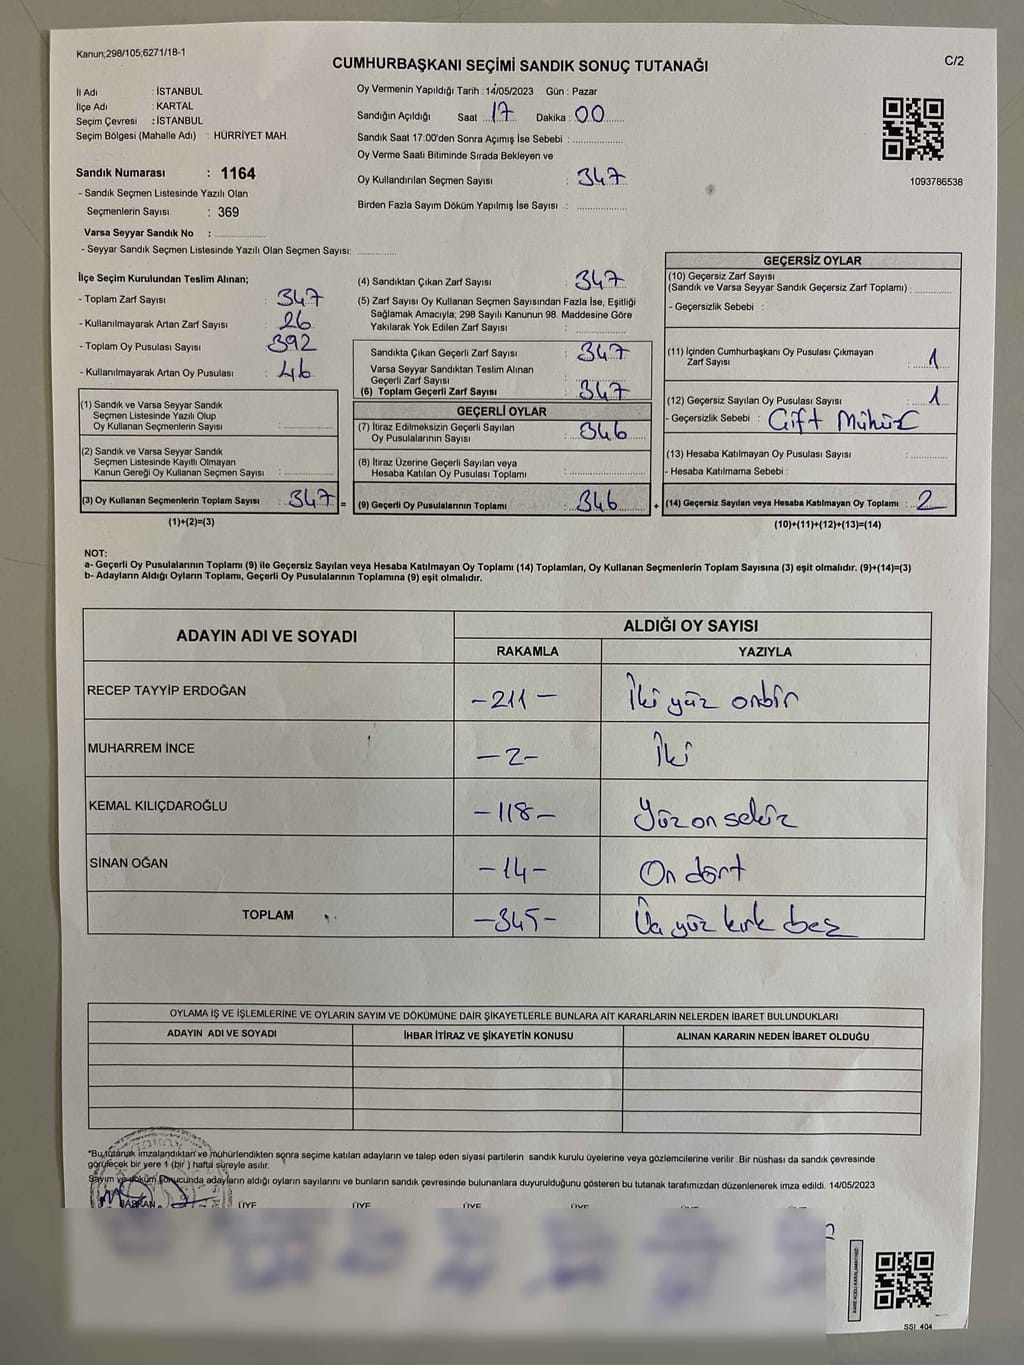 Kanun;298/105,6271/18-1
CUMHURBAŞKANI SEÇİMİ SANDIK SONUÇ TUTANAĞI
C/2
İl Adı : İSTANBUL
İlçe Adı : KARTAL
Seçim Çevresi : İSTANBUL
Seçim Bölgesi (Mahalle Adı) : HÜRRİYET MAH.
Sandık Numarası : 1164
- Sandık Seçmen Listesinde Yazılı Olan
Seçmenlerin Sayısı : 369
Varsa Seyyar Sandık No :
- Seyyar Sandık Seçmen Listesinde Yazılı Olan Seçmen Sayısı:
Oy Vermenin Yapıldığı Tarih : 14/05/2023 Gün : Pazar
Sandığın Açıldığı Saat : 17 Dakika : 00
Sandık Saat 17:00'den Sonra Açımış İse Sebebi :
Oy Verme Saati Bitiminde Sırada Bekleyen ve
Oy Kullandırılan Seçmen Sayısı : 347
Birden Fazla Sayım Döküm Yapılmış İse Sayısı :
1093786538
İlçe Seçim Kurulundan Teslim Alınan;
- Toplam Zarf Sayısı : 347
- Kullanılmayarak Artan Zarf Sayısı : 26
- Toplam Oy Pusulası Sayısı : 392
- Kullanılmayarak Artan Oy Pusulası : 46
(1) Sandık ve Varsa Seyyar Sandık
Seçmen Listesinde Yazılı Olup
Oy Kullanan Seçmenlerin Sayısı :
(2) Sandık ve Varsa Seyyar Sandık
Seçmen Listesinde Kayıtlı Olmayan
Kanun Gereği Oy Kullanan Seçmen Sayısı :
(3) Oy Kullanan Seçmenlerin Toplam Sayısı : 347 =
(1)+(2)=(3)
(4) Sandıktan Çıkan Zarf Sayısı : 347
(5) Zarf Sayısı Oy Kullanan Seçmen Sayısından Fazla İse, Eşitliği
Sağlamak Amacıyla; 298 Sayılı Kanunun 98. Maddesine Göre
Yakılarak Yok Edilen Zarf Sayısı :
Sandıkta Çıkan Geçerli Zarf Sayısı : 347
Varsa Seyyar Sandıktan Teslim Alınan
Geçerli Zarf Sayısı :
(6) Toplam Geçerli Zarf Sayısı : 347
GEÇERLİ OYLAR
(7) İtiraz Edilmeksizin Geçerli Sayılan
Oy Pusulalarının Sayısı : 346
(8) İtiraz Üzerine Geçerli Sayılan veya
Hesaba Katılan Oy Pusulası Toplamı :
(9) Geçerli Oy Pusulalarının Toplamı : 346 +
GEÇERSİZ OYLAR
(10) Geçersiz Zarf Sayısı
(Sandık ve Varsa Seyyar Sandık Geçersiz Zarf Toplamı) :
- Geçersizlik Sebebi :
(11) İçinden Cumhurbaşkanı Oy Pusulası Çıkmayan
Zarf Sayısı : 1
(12) Geçersiz Sayılan Oy Pusulası Sayısı : 1
- Geçersizlik Sebebi : Çift Mühür
(13) Hesaba Katılmayan Oy Pusulası Sayısı :
- Hesaba Katılmama Sebebi :
(14) Geçersiz Sayılan veya Hesaba Katılmayan Oy Toplamı : 2
(10)+(11)+(12)+(13)=(14)
NOT:
a- Geçerli Oy Pusulalarının Toplamı (9) ile Geçersiz Sayılan veya Hesaba Katılmayan Oy Toplamı (14) Toplamları, Oy Kullanan Seçmenlerin Toplam Sayısına (3) eşit olmalıdır. (9)+(14)=(3)
b- Adayların Aldığı Oyların Toplamı, Geçerli Oy Pusulalarının Toplamına (9) eşit olmalıdır.
ADAYIN ADI VE SOYADI ALDIĞI OY SAYISI
RAKAMLA YAZIYLA
RECEP TAYYİP ERDOĞAN -211- İki yüz onbir
MUHARREM İNCE -2- İki
KEMAL KILIÇDAROĞLU -118- Yüz on sekiz
SİNAN OĞAN -14- On dört
TOPLAM -345- Üç yüz kırk beş
OYLAMA İŞ VE İŞLEMLERİNE VE OYLARIN SAYIM VE DÖKÜMÜNE DAİR ŞİKAYETLERLE BUNLARA AİT KARARLARIN NELERDEN İBARET BULUNDUKLARI
ADAYIN ADI VE SOYADI İHBAR İTİRAZ VE ŞİKAYETİN KONUSU ALINAN KARARIN NEDEN İBARET OLDUĞU
*Bu tutanak imzalandıktan ve mühürlendikten sonra seçime katılan adayların ve talep eden siyasi partilerin sandık kurulu üyelerine veya gözlemcilerine verilir .Bir nüshası da sandık çevresinde
görülecek bir yere 1 (bir ) hafta süreyle asılır.
Sayım ve döküm sonucunda adayların aldığı oyların sayılarını ve bunların sandık çevresinde bulunanlara duyurulduğunu gösteren bu tutanak tarafımızdan düzenlenerek imza edildi. 14/05/2023
BAŞKAN ÜYE ÜYE ÜYE ÜYE
SSI_404